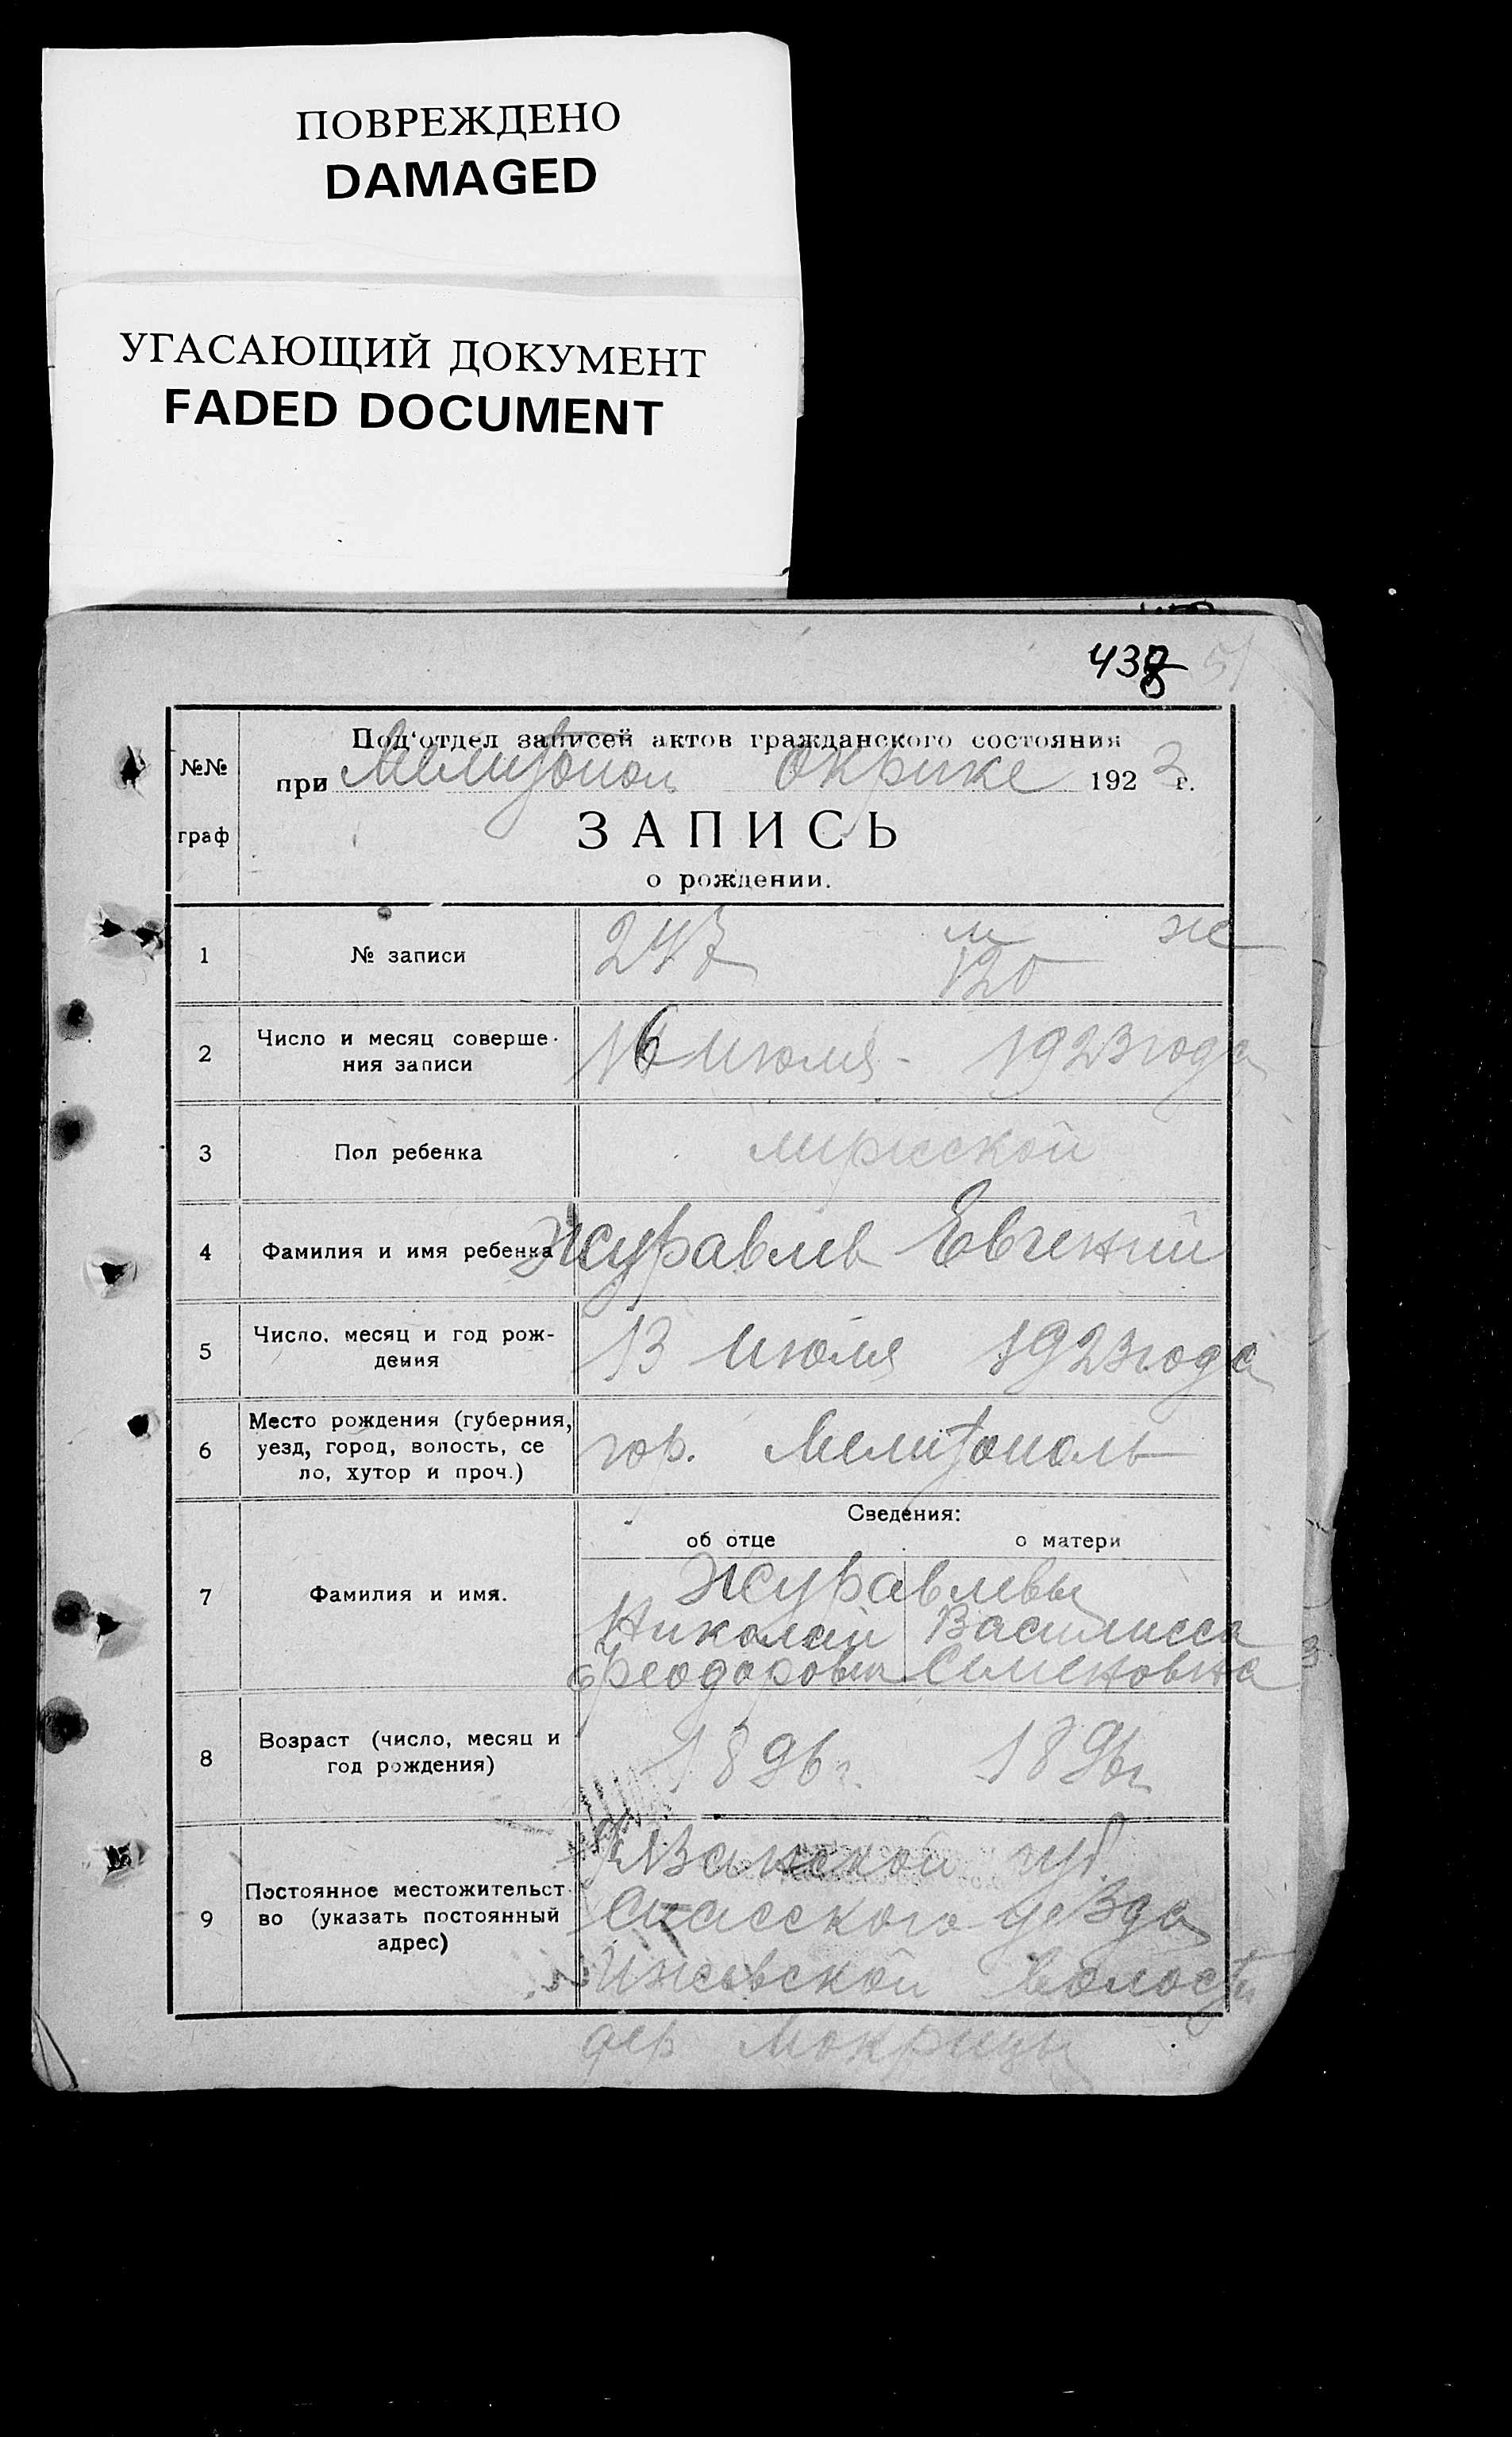 ПОВРЕЖДЕНО
DAMAGED
УГАСАЮЩИЙ ДОКУМЕНТ
FADED DOCUMENT
438
51
№№ граф
Под'отдел записей актов гражданского состояния
при Мелитопол Окрике 1923 г.
ЗАПИСЬ
о рождении.
1 № записи 247 м 120 ж
2 Число и месяц соверше-
ния записи 16 июля - 1923 года
3 Пол ребенка мужской
4 Фамилия и имя ребенка Журавлев Евгений
5 Число, месяц и год рож-
дения 13 июля 1923 года
6 Место рождения (губерния,
уезд, город, волость, се
ло, хутор и проч.) гор. Мелитополь
Сведения:
об отце о матери
7 Фамилия и имя. Журавлевы
Николай Василисса
Феодорович Семеновна
8 Возраст (число, месяц и
год рождения) 1896 г. 1896 г
9 Постоянное местожительст-
во (указать постоянный
адрес) Рязанской губ.
Спасского уезда
Ижевской волости
дер Мокрицы